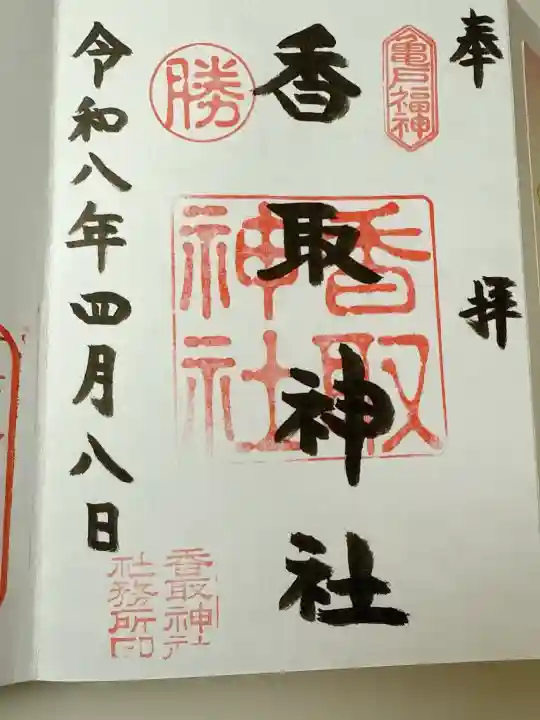 奉拝
亀戸福神
香取神社
香取神社
勝
香取神社
社務所印
令和八年四月八日